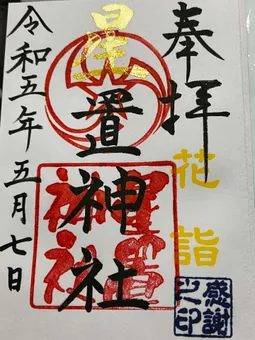 奉拝
花詣
星置神社
令和五年五月七日
星置神社
感謝之印